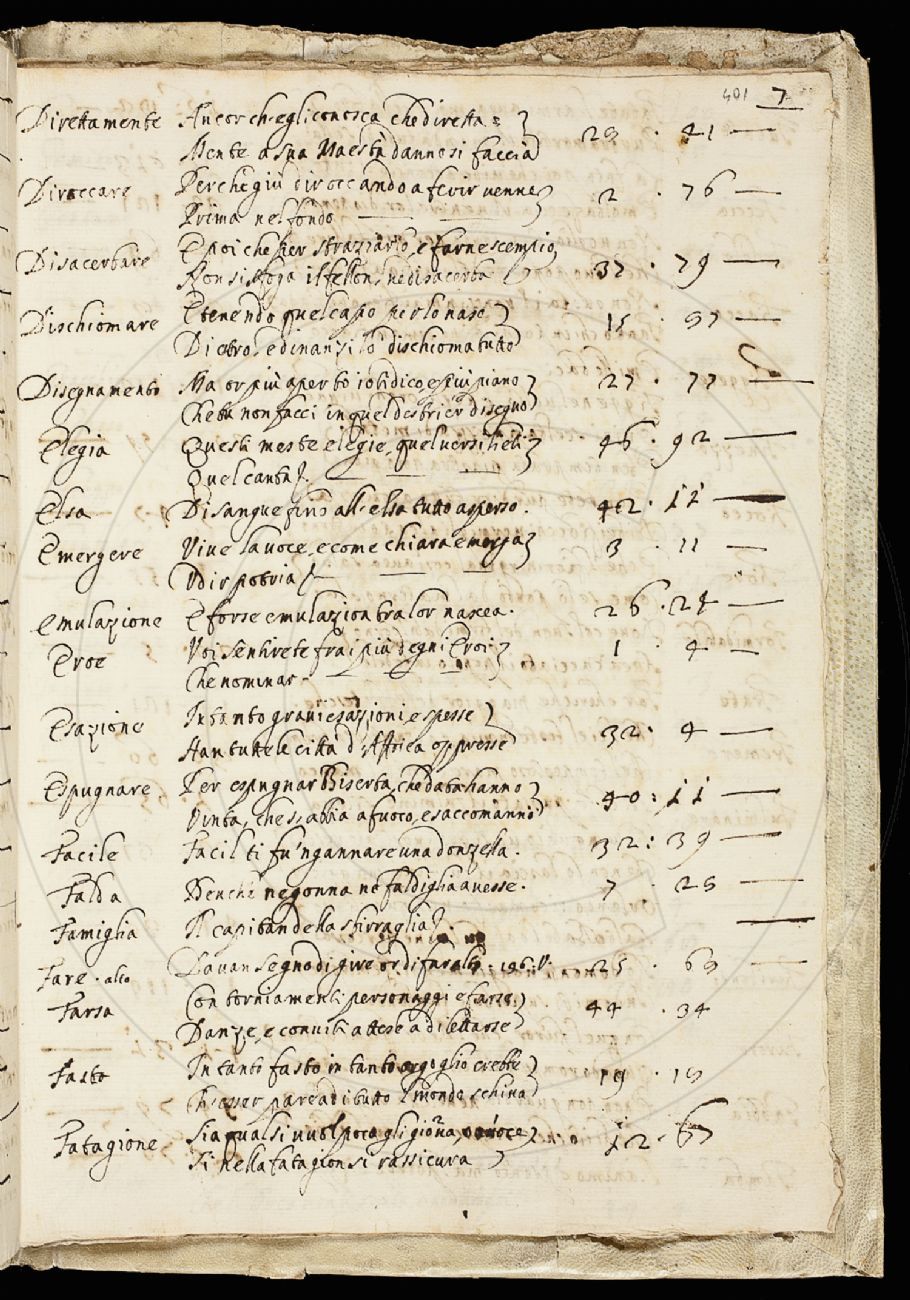 401 7
Direttamente Ancor ch'egli conosca, che diretta =
Mente a sua Maestà danno si faccia 23 · 41
Diroccare Perche giù diroccando a ferir venne
Prima nel fondo 2 · 76
Disacerbare E poi che per straziarlo, e farne scempio,
Non si sfoga il fellon, ne disacerba 37 · 79
Dischiomare E tenendo quel capo per lo naso
Dietro, e dinanzi lo dischioma tutto 15 · 87
Disegnamento Ma or più aperto io ti dico, e più piano 27 · 77
Che tu non facci in quel destrier disegno
Elegia Questi meste elegie, quel versi lieti 46 · 92
Quel canta
Elsa Di sangue fino all'elsa tutto asperso. 42 · 11
Emergere Vive la voce, e come chiara emerga 3 · 11
Udir potria
Emulazione E forse emulazion tra lor nascea. 26 · 24
Eroe Voi sentirete fra i più degni Eroi 1 · 4
Che nominar
Esazione Intanto gravi esazioni, e spesse
Han tutte le città d'Affrica oppresse 32 · 4
Espugnare Per espugnar Biserta, che data hanno
Vinta, che s'abbia a fuoco, e saccomanno 40 : 11
Facile Facil ti fu 'ngannare una donzella. 32 : 39
Falda Benche ne gonna ne faldiglia avesse. 7 · 28
Famiglia Il capitan della sbirraglia.
Fare · alto Davan segno di gire or di far alto : 25 · 69
Farsa Con torniamenti personaggi e farse 44 · 34
Danze, e conviti attese a dilettarse
Fasto In tanto fasto in tanto orgoglio crebbe
Ch'esser parea di tutto 'l mondo schiva 19 · 19
Fatagione Sia qual si vuol poco gli giova, o nuoce
Sì nella fatagion si rassicura 12 · 67